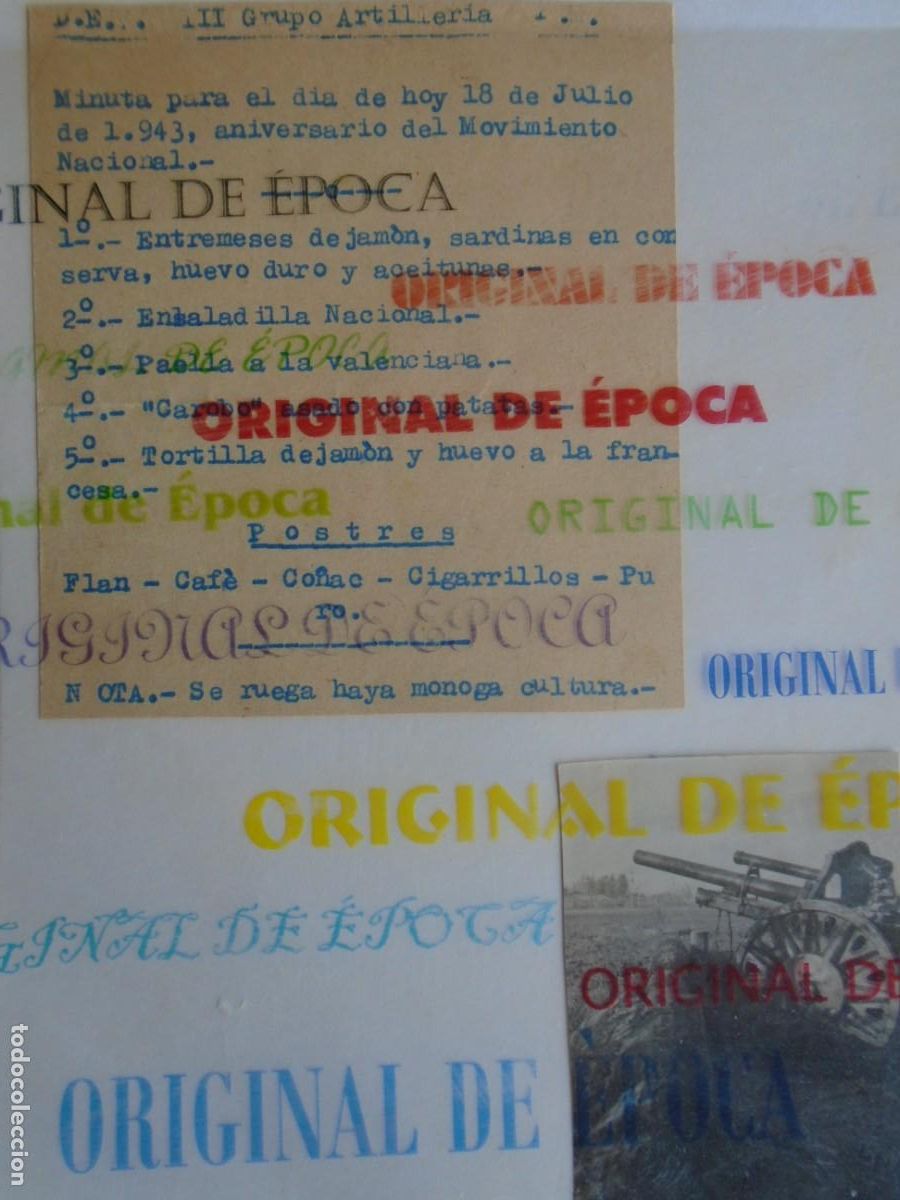 III Grupo Artilleria
Minuta para el dia de hoy 18 de Julio
de 1.943, aniversario del Movimiento
Nacional.-
GINAL DE ÉPOCA
1º.- Entremeses de jamòn, sardinas en con
serva, huevo duro y aceitunas.-
ORIGINAL DE ÉPOCA
2º.- Ensaladilla Nacional.-
DE ÉPOCA
3º.- Paella a la valenciana.-
4º.- "Carobo" asado con patatas.-
ORIGINAL DE ÉPOCA
5º.- Tortilla dejamòn y huevo a la fran-
cesa.-
nal de Época
ORIGINAL DE
P o s t r e s
Flan - Cafè - Coñac - Cigarrillos - Pu
ro.
RIGINAL DE ÉPOCA
ORIGINAL
N OTA.- Se ruega haya monoga cultura.-
ORIGINAL DE ÉP
GINAL DE ÉPOCA
ORIGINAL DE
ORIGINAL DE ÉPOCA
todocoleccion